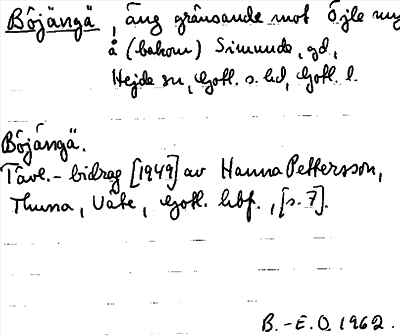 Böjängä, äng gränsande mot Öjle my
å (bakom) Simunde, gd,
Hejde sn, Gotl. s. hd, Gotl. l.
Böjängä.
Tävl.-bidrag [1949] av Hanna Pettersson,
Thuna, Väte, Gotl. hbf., [s. 7].
B.-E.O. 1962.